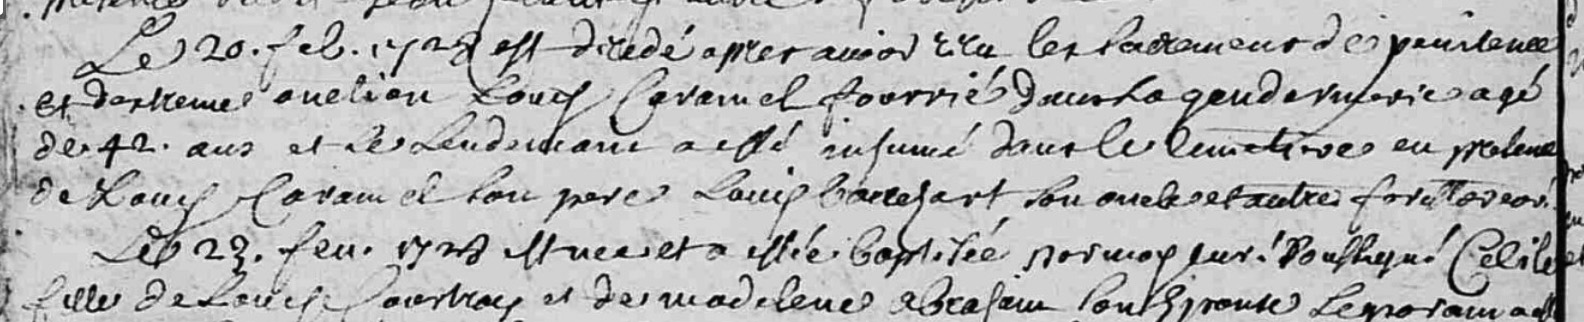 Le 20. feb. 1728 est decedé apres avoir reçu les sacremens de penitence
et d'extreme onction Louis Caramel fourrié dans la gendarmerie agé
de 42. ans et le lendemain a esté inhumé dans le cimetiere en presence
de Louis Caramel son pere Louis son oncle et autres
Le 23. feu. 1728 est nee et a esté baptisée par moy curé soussigné Celile
fille de Louis et de madelene abraham son Epouse le parain a esté